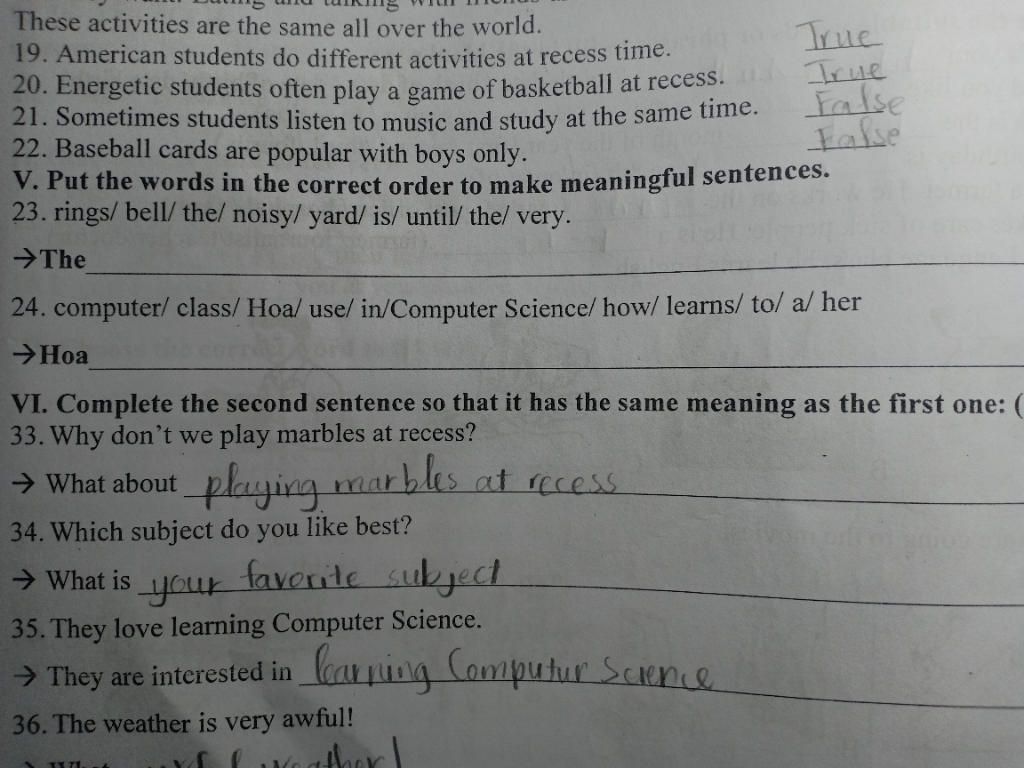 These activities are the same all over the world.
19. American students do different activities at recess time. True
20. Energetic students often play a game of basketball at recess. True
21. Sometimes students listen to music and study at the same time. False
22. Baseball cards are popular with boys only. False
V. Put the words in the correct order to make meaningful sentences.
23. rings/ bell/ the/ noisy/ yard/ is/ until/ the/ very.
→The
24. computer/ class/ Hoa/ use/ in/Computer Science/ how/ learns/ to/ a/ her
→Hoa
VI. Complete the second sentence so that it has the same meaning as the first one: (
33. Why don't we play marbles at recess?
→ What about playing marbles at recess
34. Which subject do you like best?
→ What is your favorite subject
35. They love learning Computer Science.
→ They are interested in learning Computur Science
36. The weather is very awful!
What weather!